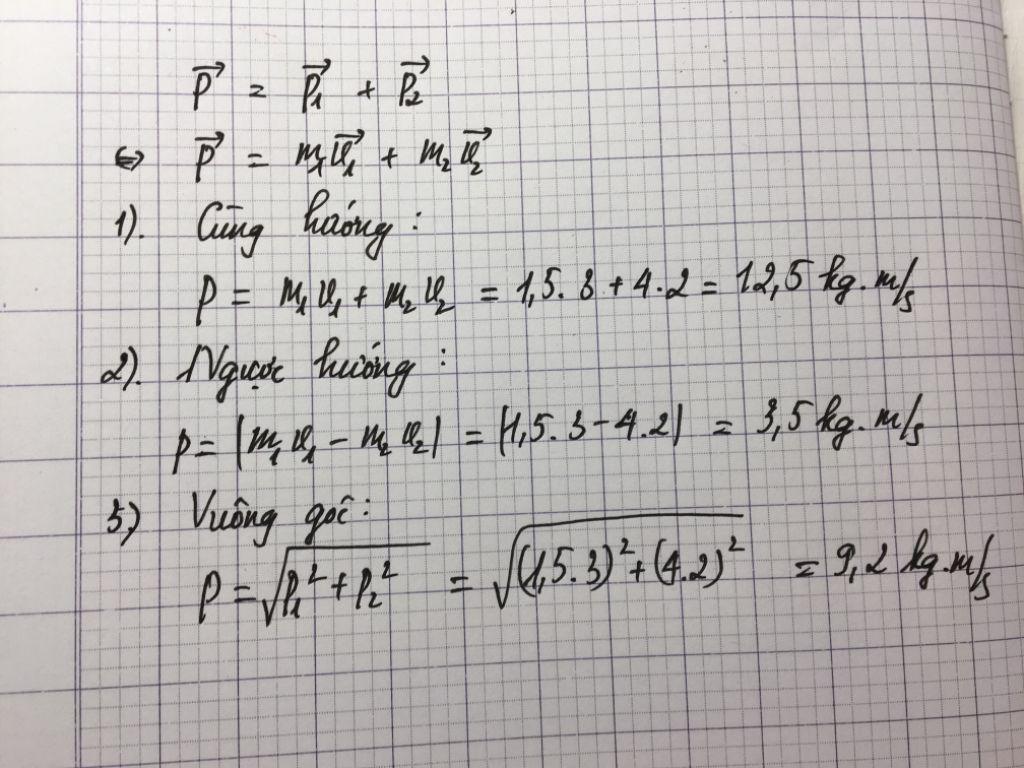 p⃗ = p₁⃗ + p₂⃗
⇔ p⃗ = m₁v₁⃗ + m₂v₂⃗
1). Cùng hướng :
p = m₁v₁ + m₂v₂ = 1,5.3 + 4.2 = 12,5 kg.m/s
2). Ngược hướng :
p = |m₁v₁ − m₂v₂| = |1,5.3 − 4.2| = 3,5 kg.m/s
3) Vuông góc :
p = √(p₁² + p₂²) = √((1,5.3)² + (4.2)²) = 9,2 kg.m/s